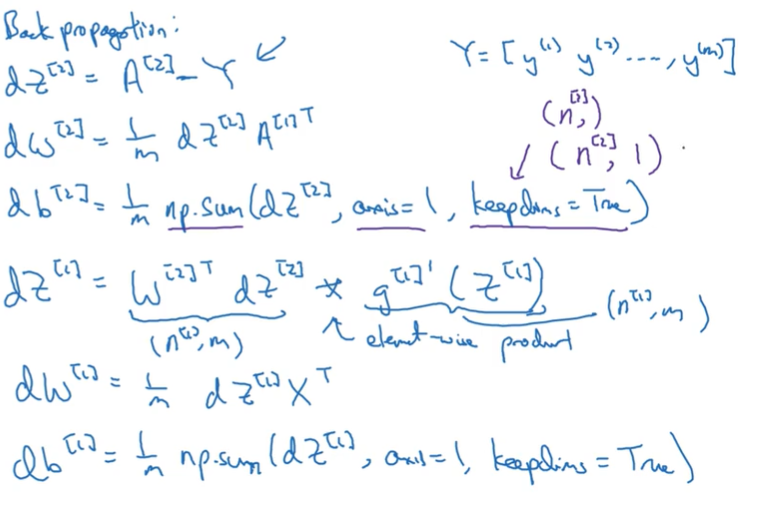 Back propagation:
dZ^[2] = A^[2] - Y ↙ Y = [y^(1) y^(2) ..., y^(m)]
dW^[2] = 1/m dZ^[2] A^[1]T
(n^[2],)
↙ (n^[2], 1) .
db^[2] = 1/m np.sum(dZ^[2], axis=1, keepdims=True)
dZ^[1] = W^[2]T dZ^[2] * g^[1]'(Z^[1])
(n^[1], m) ↖ element-wise product (n^[1], m)
dW^[1] = 1/m dZ^[1] X^T
db^[1] = 1/m np.sum(dZ^[1], axis=1, keepdims=True)